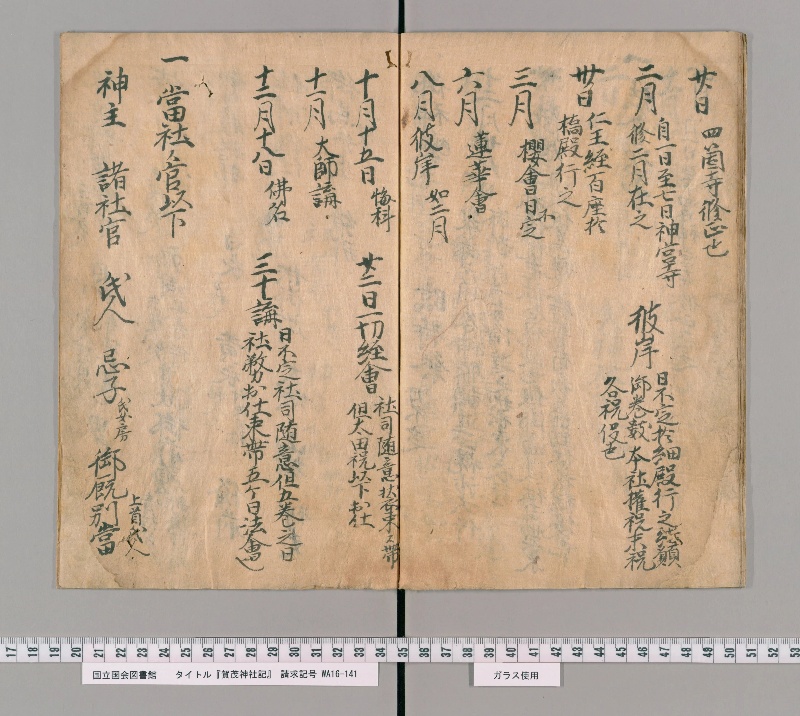 廿日 四箇寺修正也
二月 自一日至七日神宮寺
修二月在之
彼岸 日不定於細殿行之結願
御巻数本社権祝末祝
各祝役也
卅日 仁王経百座於
橋殿行之
三月 櫻會日不定
六月 蓮華會
八月彼岸 如二月
十月十五日 悔科
廿二日一切経會 社司随意狄衣束帯
但太田祝以下出仕
十一月 大師講
十二月十八日 佛名
三十講 日不定社司随意但五巻之日
社務出仕束帯五ヶ日法會
一 當社之官以下
神主 諸社官 氏人 忌子 氏女房 御厩別當 上首氏人
国立国会図書館 タイトル『賀茂神社記』 請求記号 WA16-141
ガラス使用
17 18 19 20 21 22 23 24 25 26 27 28 29 30 31 32 33 34 35 36 37 38 39 40 41 42 43 44 45 46 47 48 49 50 51 52 53